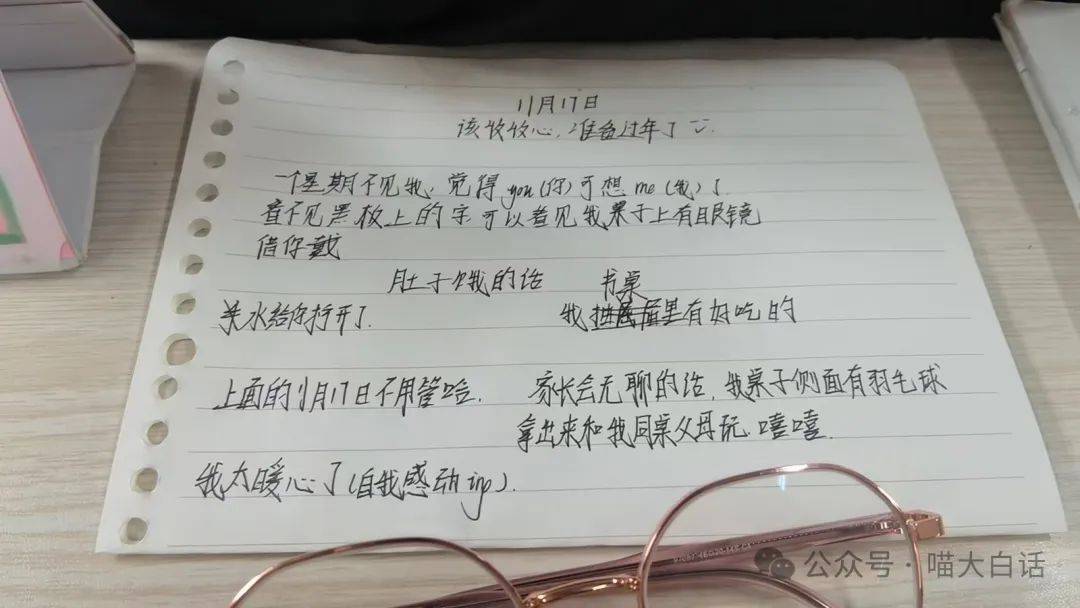 11月17日
该收收心,准备过年了
一个星期不见我,觉得you(你)可想me(我)了
看不见黑板上的字可以看见我桌子上有眼镜
借你戴
肚子饿的话 书桌
关水给你拧开了.
我 里有好吃的
上面的11月17日不用管哈.
家长会无聊的话,我桌子侧面有羽毛球
拿出来和我同桌父母玩.嘻嘻.
我太暖心了(自我感动ing).
公众号·喵大白话